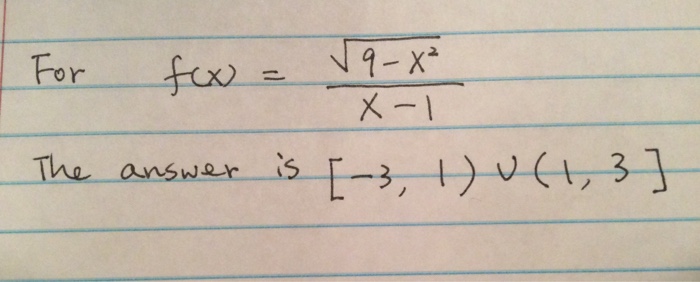 For f(x) = √(9-x²) / (x-1)
The answer is [-3, 1) ∪ (1, 3]